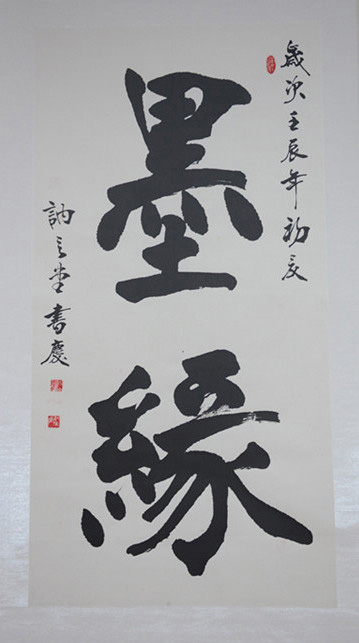 歲次壬辰年初夏
墨緣
訥言堂書慶